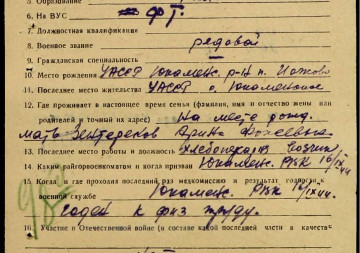 5. Образование
6. На ВУС ФТ.
7. Должностная квалификация
8. Военное звание рядовой
9. Гражданская специальность
10. Место рождения УАССР Юкаменс. р-н п.
11. Последнее место жительства УАССР с. Юкаменское
12. Где проживает в настоящее время семья (фамилия, имя и отчество жены или
родителей и точный их адрес) На месте рожд.
мать
13. Последнее место работы и должность
14. Каким райгорвоенкоматом и когда призван Юкаменс. РВК 16/IX 44
15. Когда и где проходил последний раз медкомиссию и результат годности к
военной службе Юкаменс. РВК 16/IX 44
годен к физ труду.
16. Участие в Отечественной войне (в составе какой последней части в качестве